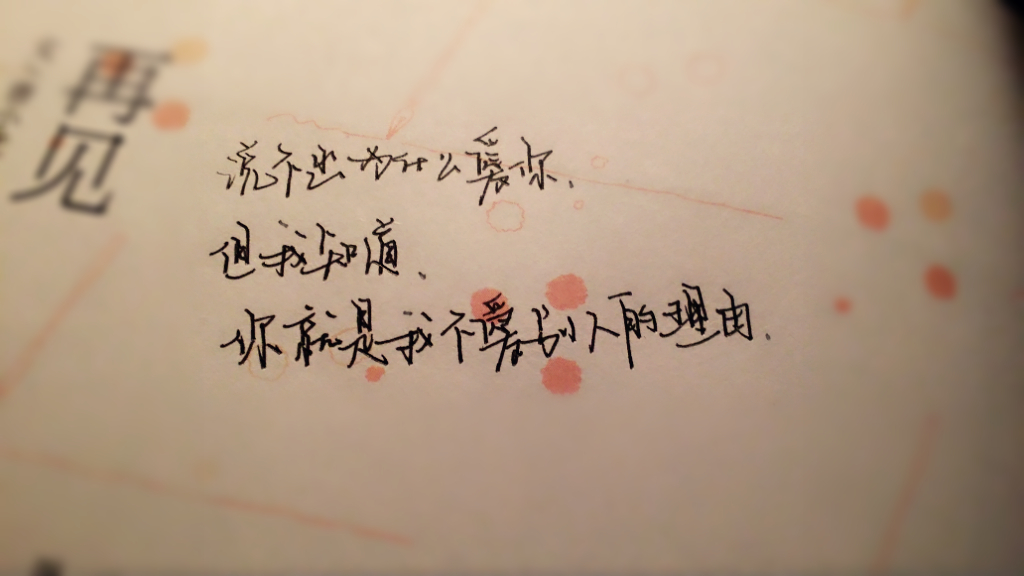 再见
说不出为什么爱你,
但我知道,
你就是我不爱别人的理由.